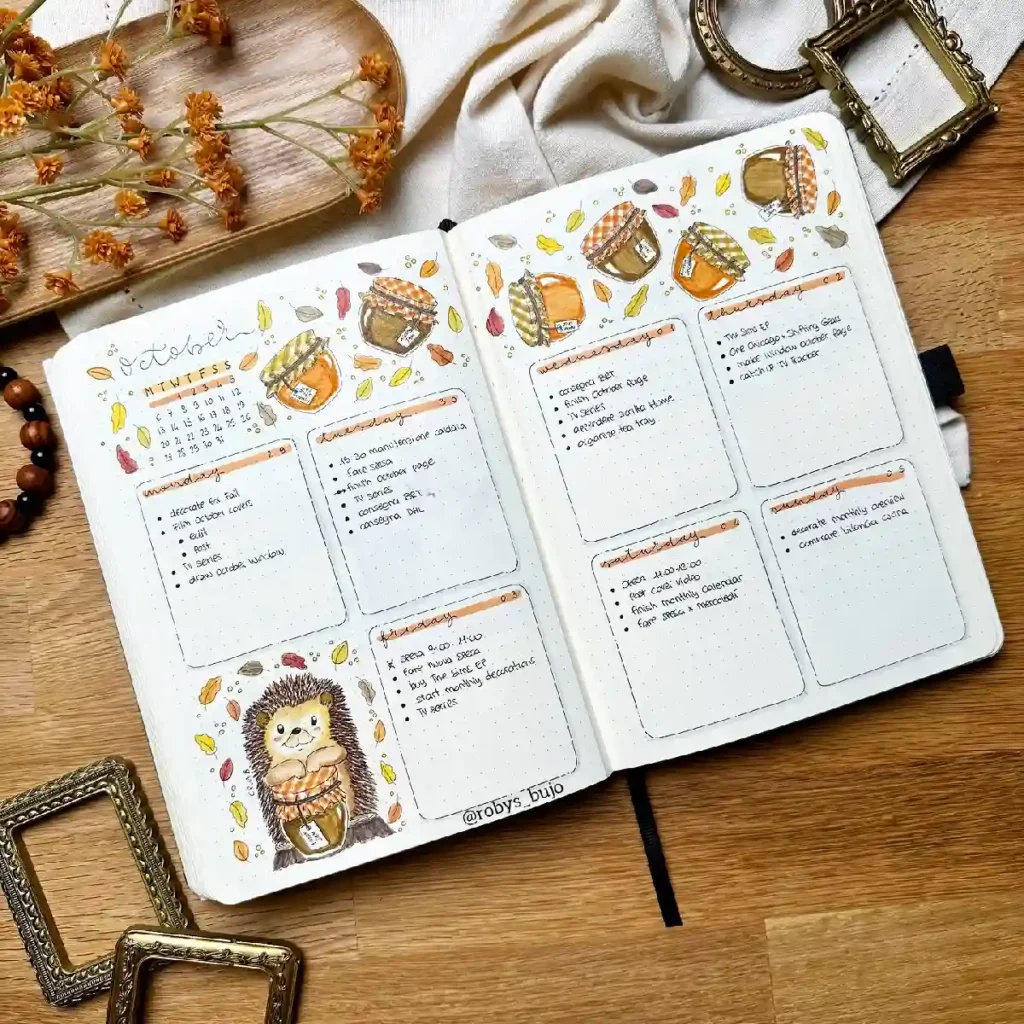 October
M T W T F S S
1 2 3 4 5
6 7 8 9 10 11 12
13 14 15 16 17 18 19
20 21 22 23 24 25 26
27 28 29 30 31
monday 29
decorate for Fall
Film October covers
edit
post
TV series
draw October window
tuesday 30
15:30 manutenzione caldaia
fare spesa
finish October page
TV series
consegna BRT
consegna DHL
friday 03
spesa 9:00-11:00
fare nuova spesa
buy The Sims EP
start monthly decorations
TV series
@robys_bujo
wednesday 01
consegna BRT
finish October page
TV series
organize tea tray
thursday 02
The Sims EP
One Chicago + Shifting Gears
make window October page
catch up TV tracker
saturday 04
spesa
post cover video
finish monthly calendar
fare spesa x mercoledì
sunday 05
decorate monthly overview
comprare bilancia cucina